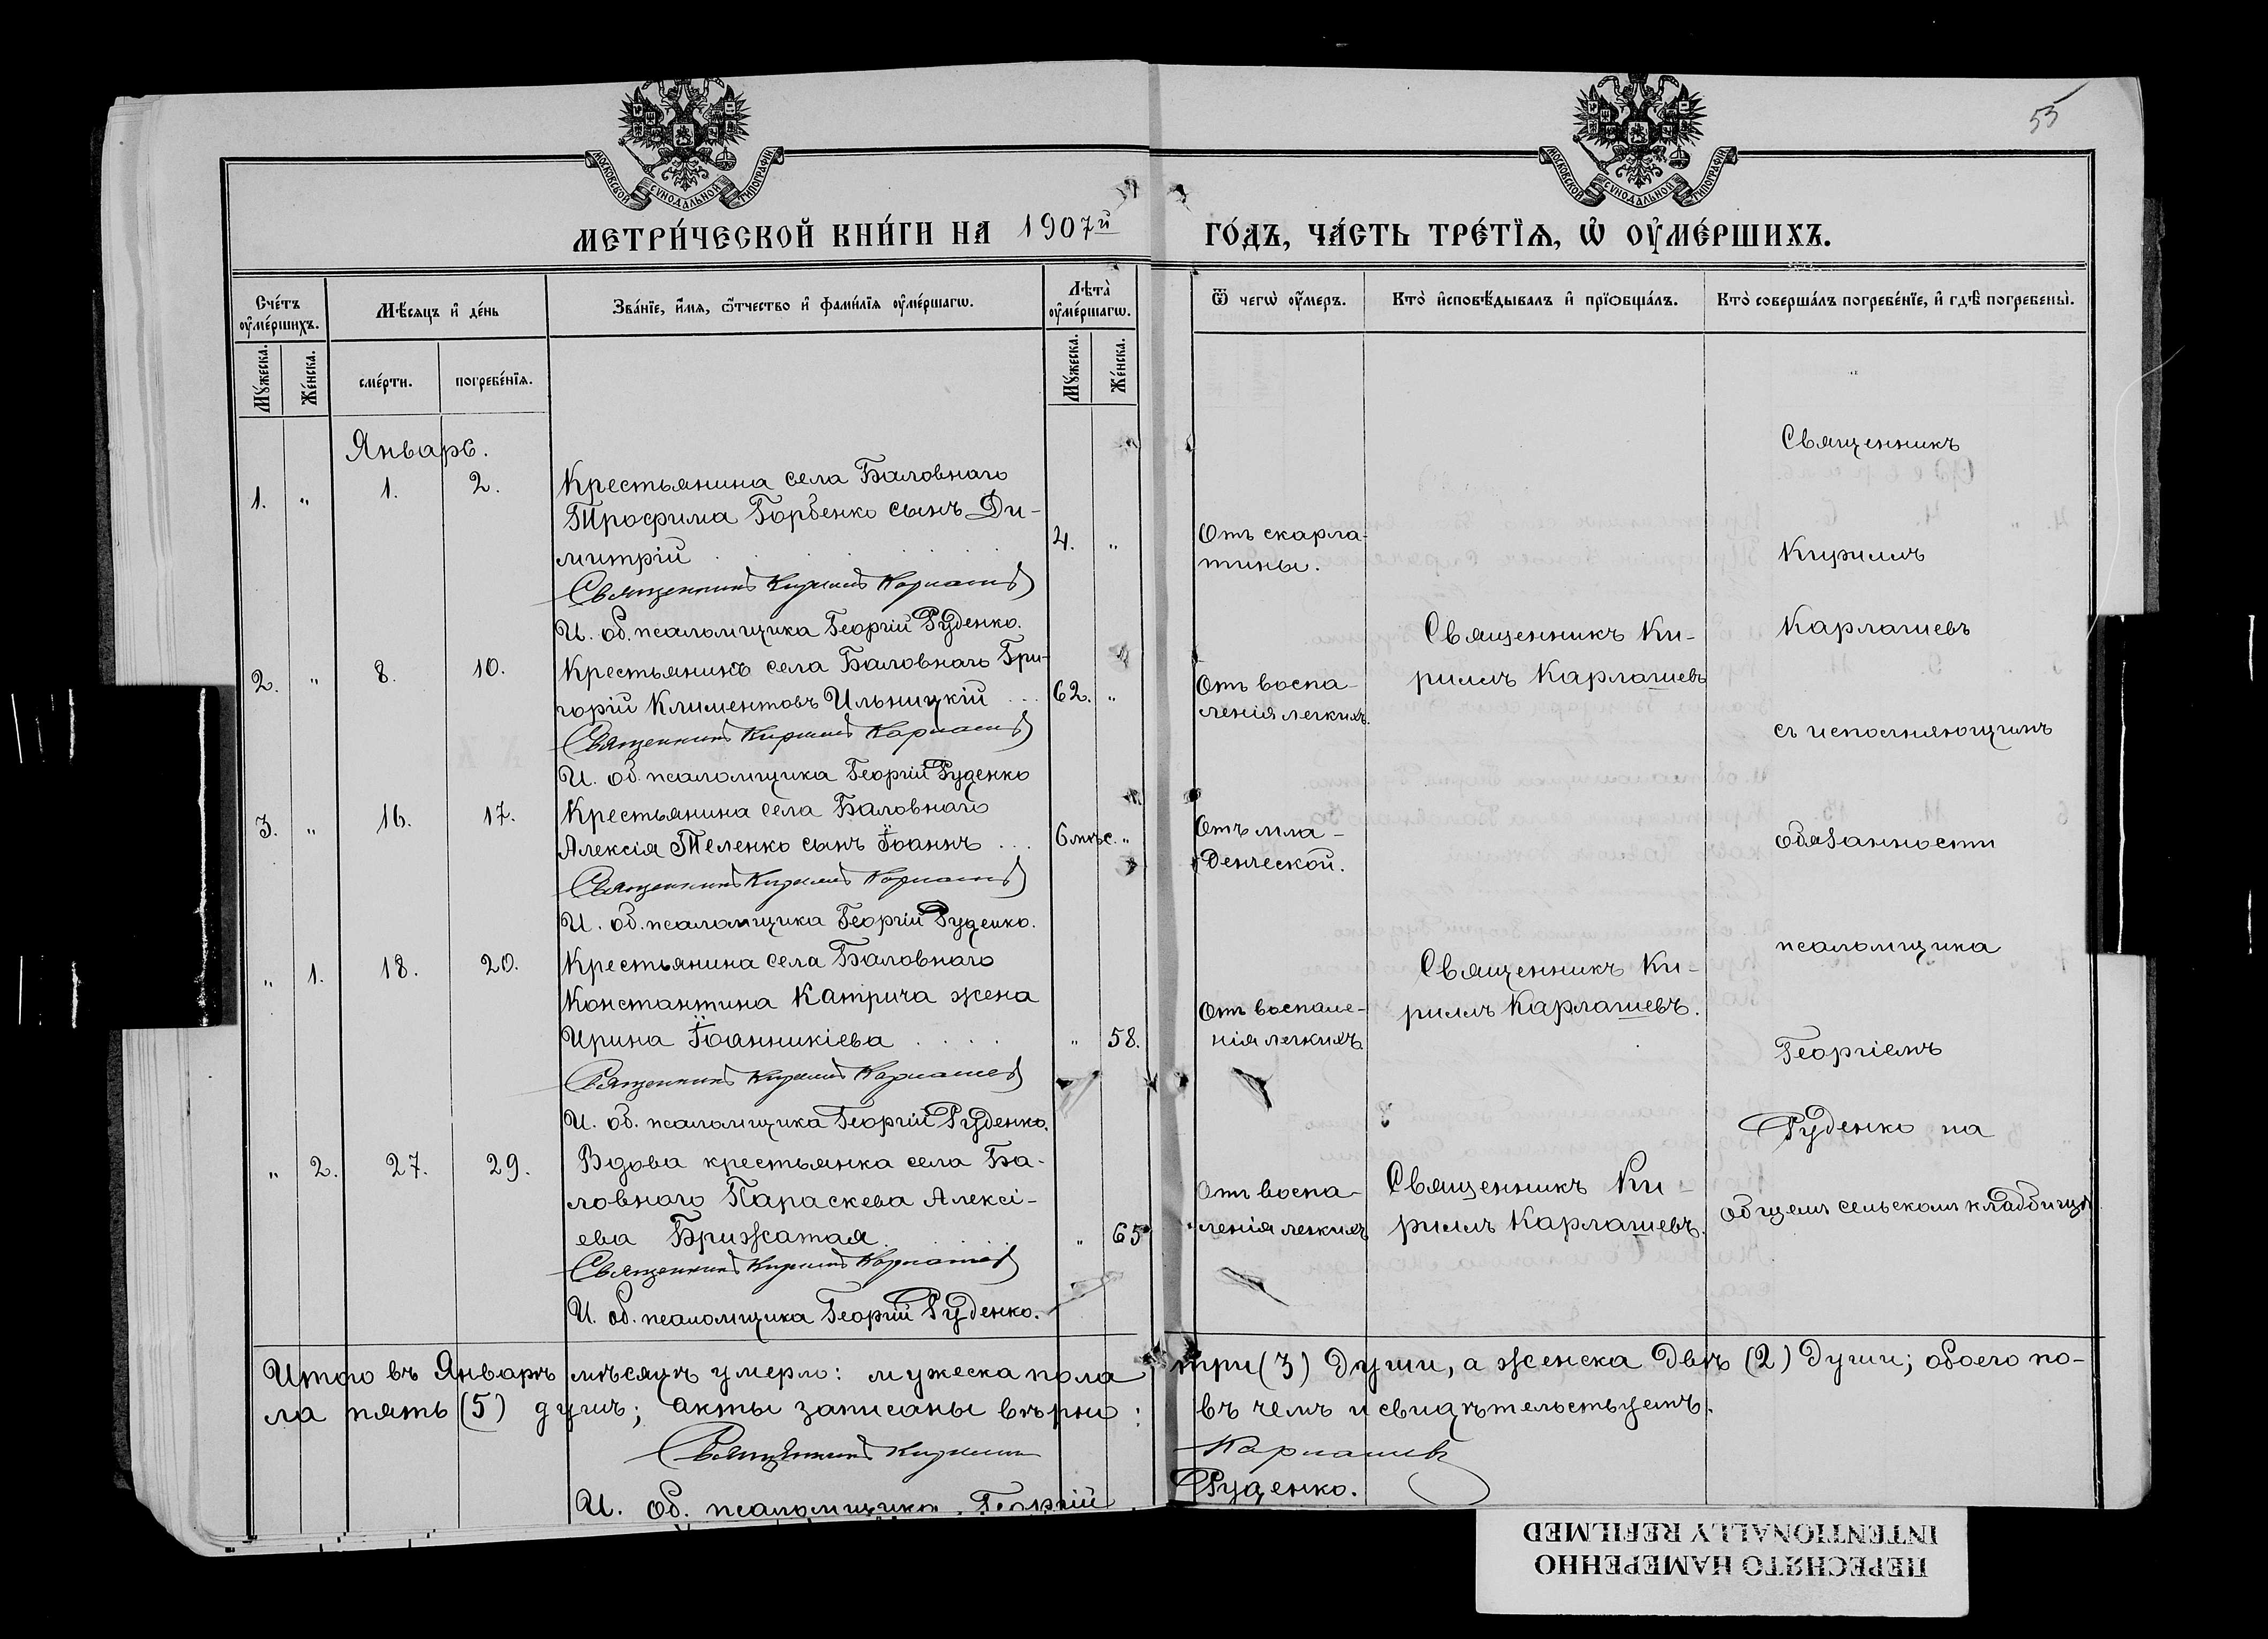 55
МОСКОВСКОЙ СУНОДАЛЬНОЙ ТИПОГРАФІИ
МОСКОВСКОЙ СУНОДАЛЬНОЙ ТИПОГРАФІИ
МЕТРИ́ЧЕСКОЙ КНИ́ГИ НА 1907й ГО́ДЪ, ЧА́СТЬ ТРЕ́ТЇѦ, Ѡ ОУ҆МЕ́РШИХЪ.
Сче́тъ оу҆ме́ршихъ.
Мꙋ́жеска.
Же́нска.
Мѣ́сѧцъ и҆ де́нь
сме́рти.
погребе́нїѧ.
Зва́нїе, и҆́мѧ, ѻ҆́тчество и҆ фами́лїѧ оу҆ме́ршагѡ.
Лѣта̀ оу҆ме́ршагѡ.
Мꙋ́жеска.
Же́нска.
Ѿ чегѡ̀ оу҆́меръ.
Кто̀ и҆сповѣ́дывалъ и҆ прїѡбща́лъ.
Кто̀ соверша́лъ погребе́нїе, и҆ гдѣ̀ погребены̀.
Январь.
1. " 1. 2. Крестьянина села Баловнаго
Трофима Горбенко сынъ Ди-
митрій 4. "
Священникъ Кириллъ Карлашевъ
И. об. псаломщика Георгій Руденко.
Отъ скарла-
тины.
2. " 8. 10. Крестьянинъ села Баловнаго Гри-
горій Климентовъ Ильницкій ... 62. "
Священникъ Кириллъ Карлашевъ
И. об. псаломщика Георгій Руденко
Отъ воспа-
ленія легкихъ.
Священникъ Ки-
риллъ Карлашевъ
3. " 16. 17. Крестьянина села Баловнаго
Алексія Теленко сынъ Іоаннъ ... 6 мѣс. "
Священникъ Кириллъ Карлашевъ
И. об. псаломщика Георгій Руденко.
Отъ мла-
денческой.
" 1. 18. 20. Крестьянина села Баловнаго
Константина Катрича жена
Ирина Іоанникіева " 58.
Священникъ Кириллъ Карлашевъ
И. об. псаломщика Георгій Руденко.
Отъ воспале-
нія легкихъ.
Священникъ Ки-
риллъ Карлашевъ.
" 2. 27. 29. Вдова крестьянка села Ба-
ловного Параскева Алексі-
ева Брижатая " 65
Священникъ Кириллъ Карлашевъ
И. об. псаломщика Георгій Руденко.
Отъ воспа-
ленія легкихъ
Священникъ Ки-
риллъ Карлашевъ.
Священникъ
Кириллъ
Карлашевъ
съ исполняющимъ
обязанности
псаломщика
Георгіемъ
Руденко на
общемъ сельскомъ кладбищѣ
Итого въ Январѣ мѣсяцѣ умерло: мужеска пола три (3) души, а женска двѣ (2) души; обоего по-
ла пять (5) душъ; акты записаны вѣрно: въ чемъ и свидѣтельствуемъ.
Священникъ Кириллъ Карлашевъ
И. об. псаломщика Георгій Руденко.
ПЕРЕСНЯТО НАМЕРЕННО
INTENTIONALLY REFILMED